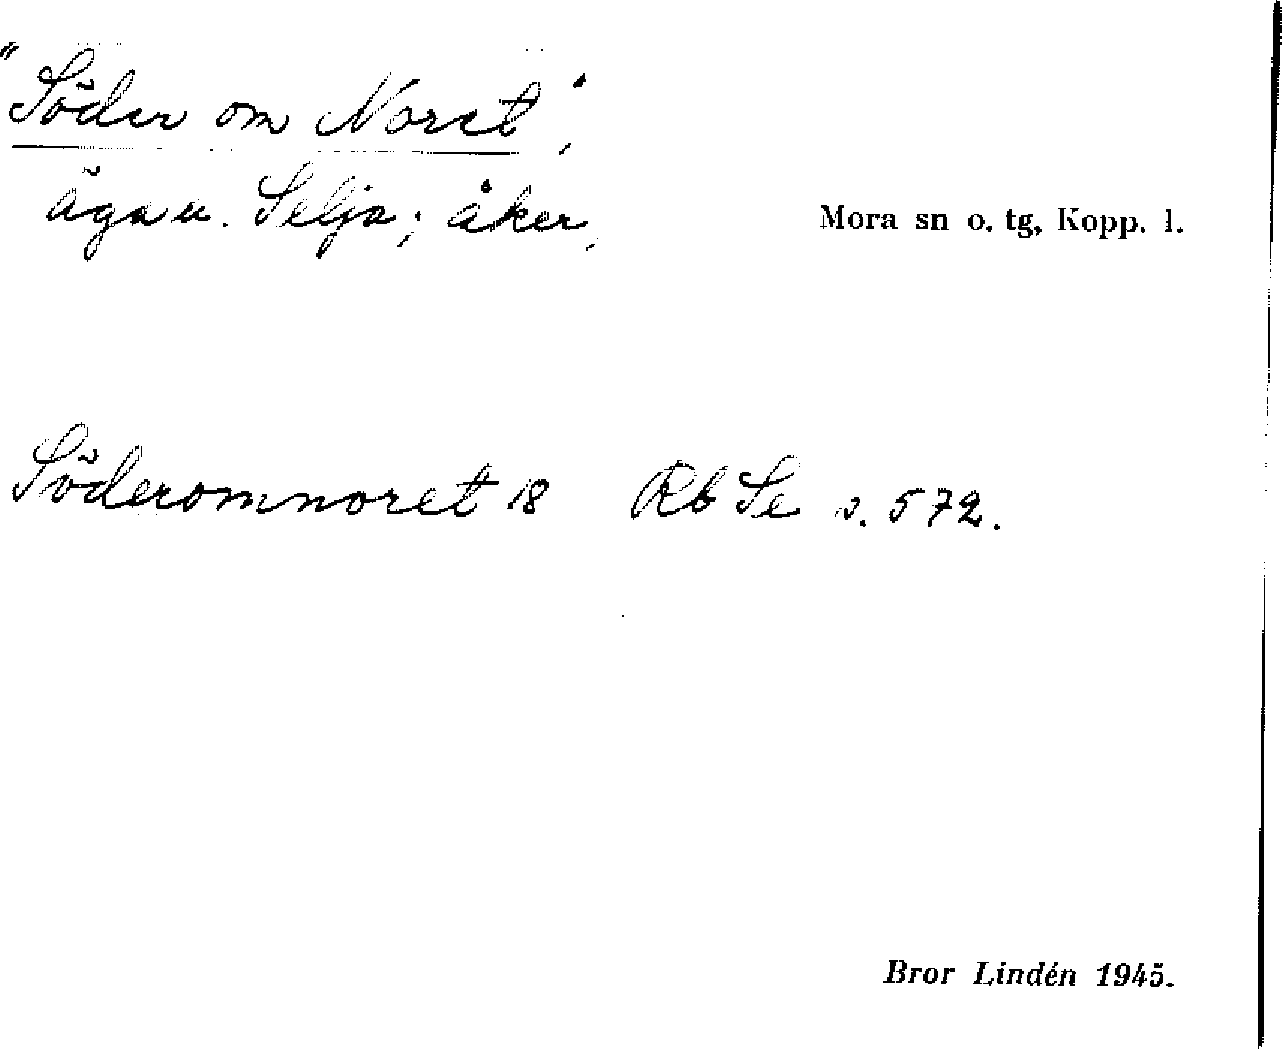 "Söder om Noret",
ägor u. Selja; åker.
Mora sn o. tg, Kopp. l.
Söderomnoret 18 Rb Se s. 572.
Bror Lindén 1945.